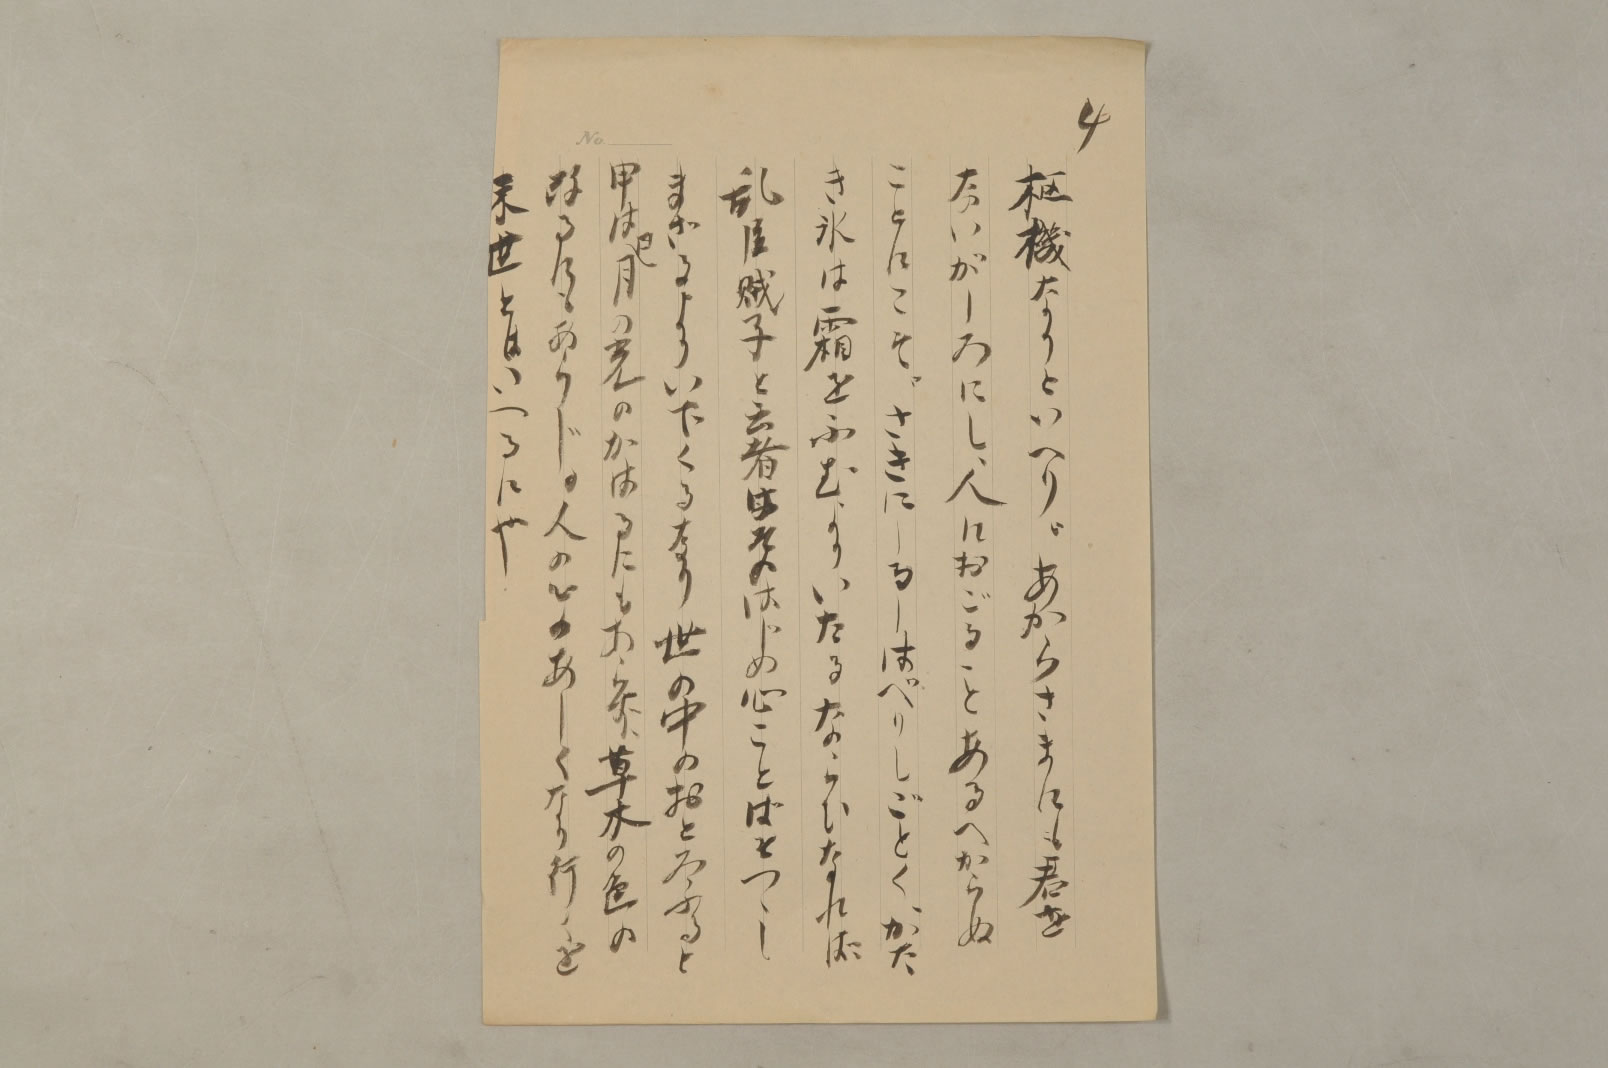 4
No.
枢機なりといへり。あからさまにも君を
ないがしろにし、人におごることあるべからぬ
ことにこそ。さきにしるしはべりしごとくかた
き氷は霜をふむよりいたるならひなれば
乱臣賊子と云者はそのはじめ心ことばをつつし
まざるよりいでくるなり世の中のおとろふると
申は日月の光のかはるにもあらず草木の色の
改るにもあらじ人の心のあしくなり行を
末世とはいへるにや